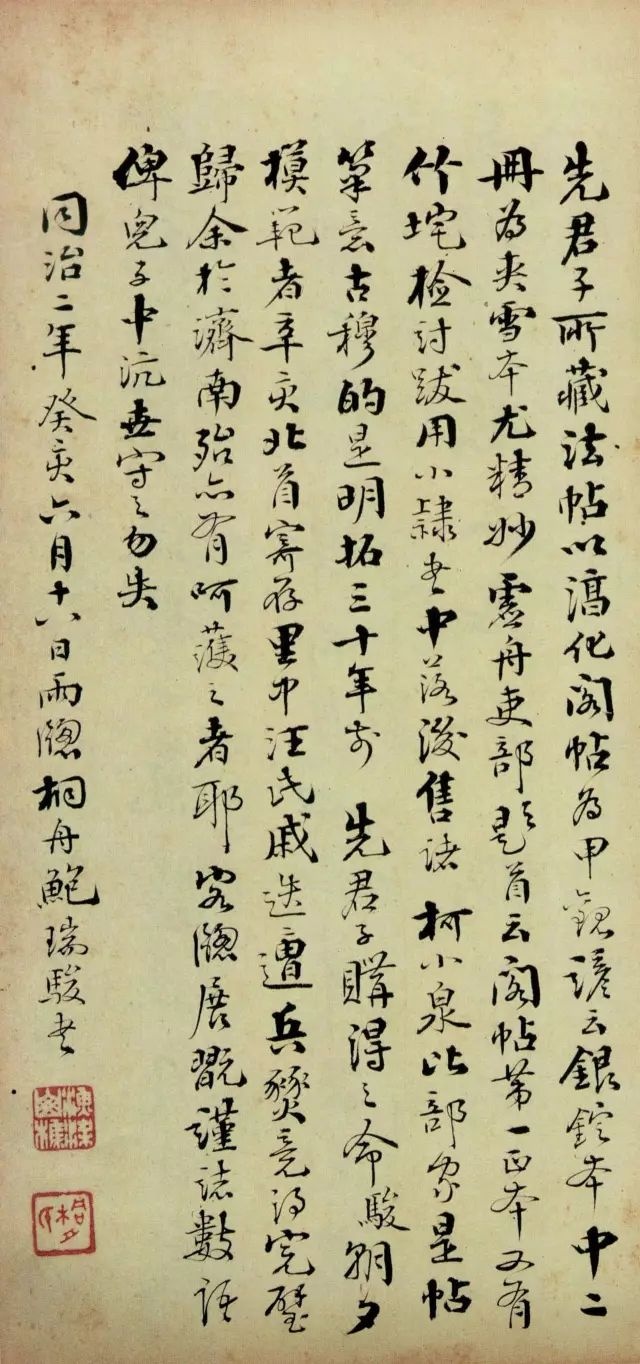 先君子所藏法帖以淳化阁帖為甲觀諺云銀錠本中二
冊為夾雪本尤精妙虛舟吏部題首云阁帖第一正本又有
竹垞檢討跋用小隸書中落後售諸柯小泉比部家是帖
筆意古穆的是明拓三十年前先君子購得之命駿朝夕
模範者辛亥北首寄存里中汪氏戚迭遭兵燹竟得完璧
歸余於濟南殆亦有呵護之者耶客牕展翫謹誌數語
俾兒子中沆世守之勿失
同治二年癸亥六月十八日雨牕桐舟鮑瑞駿書